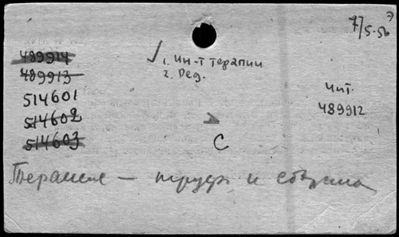 7/5-56
489914
1. Ин-т терапии
489913
2. Ред.
514601
Чит.
489912
514602
514603
С
Терапия — труды и